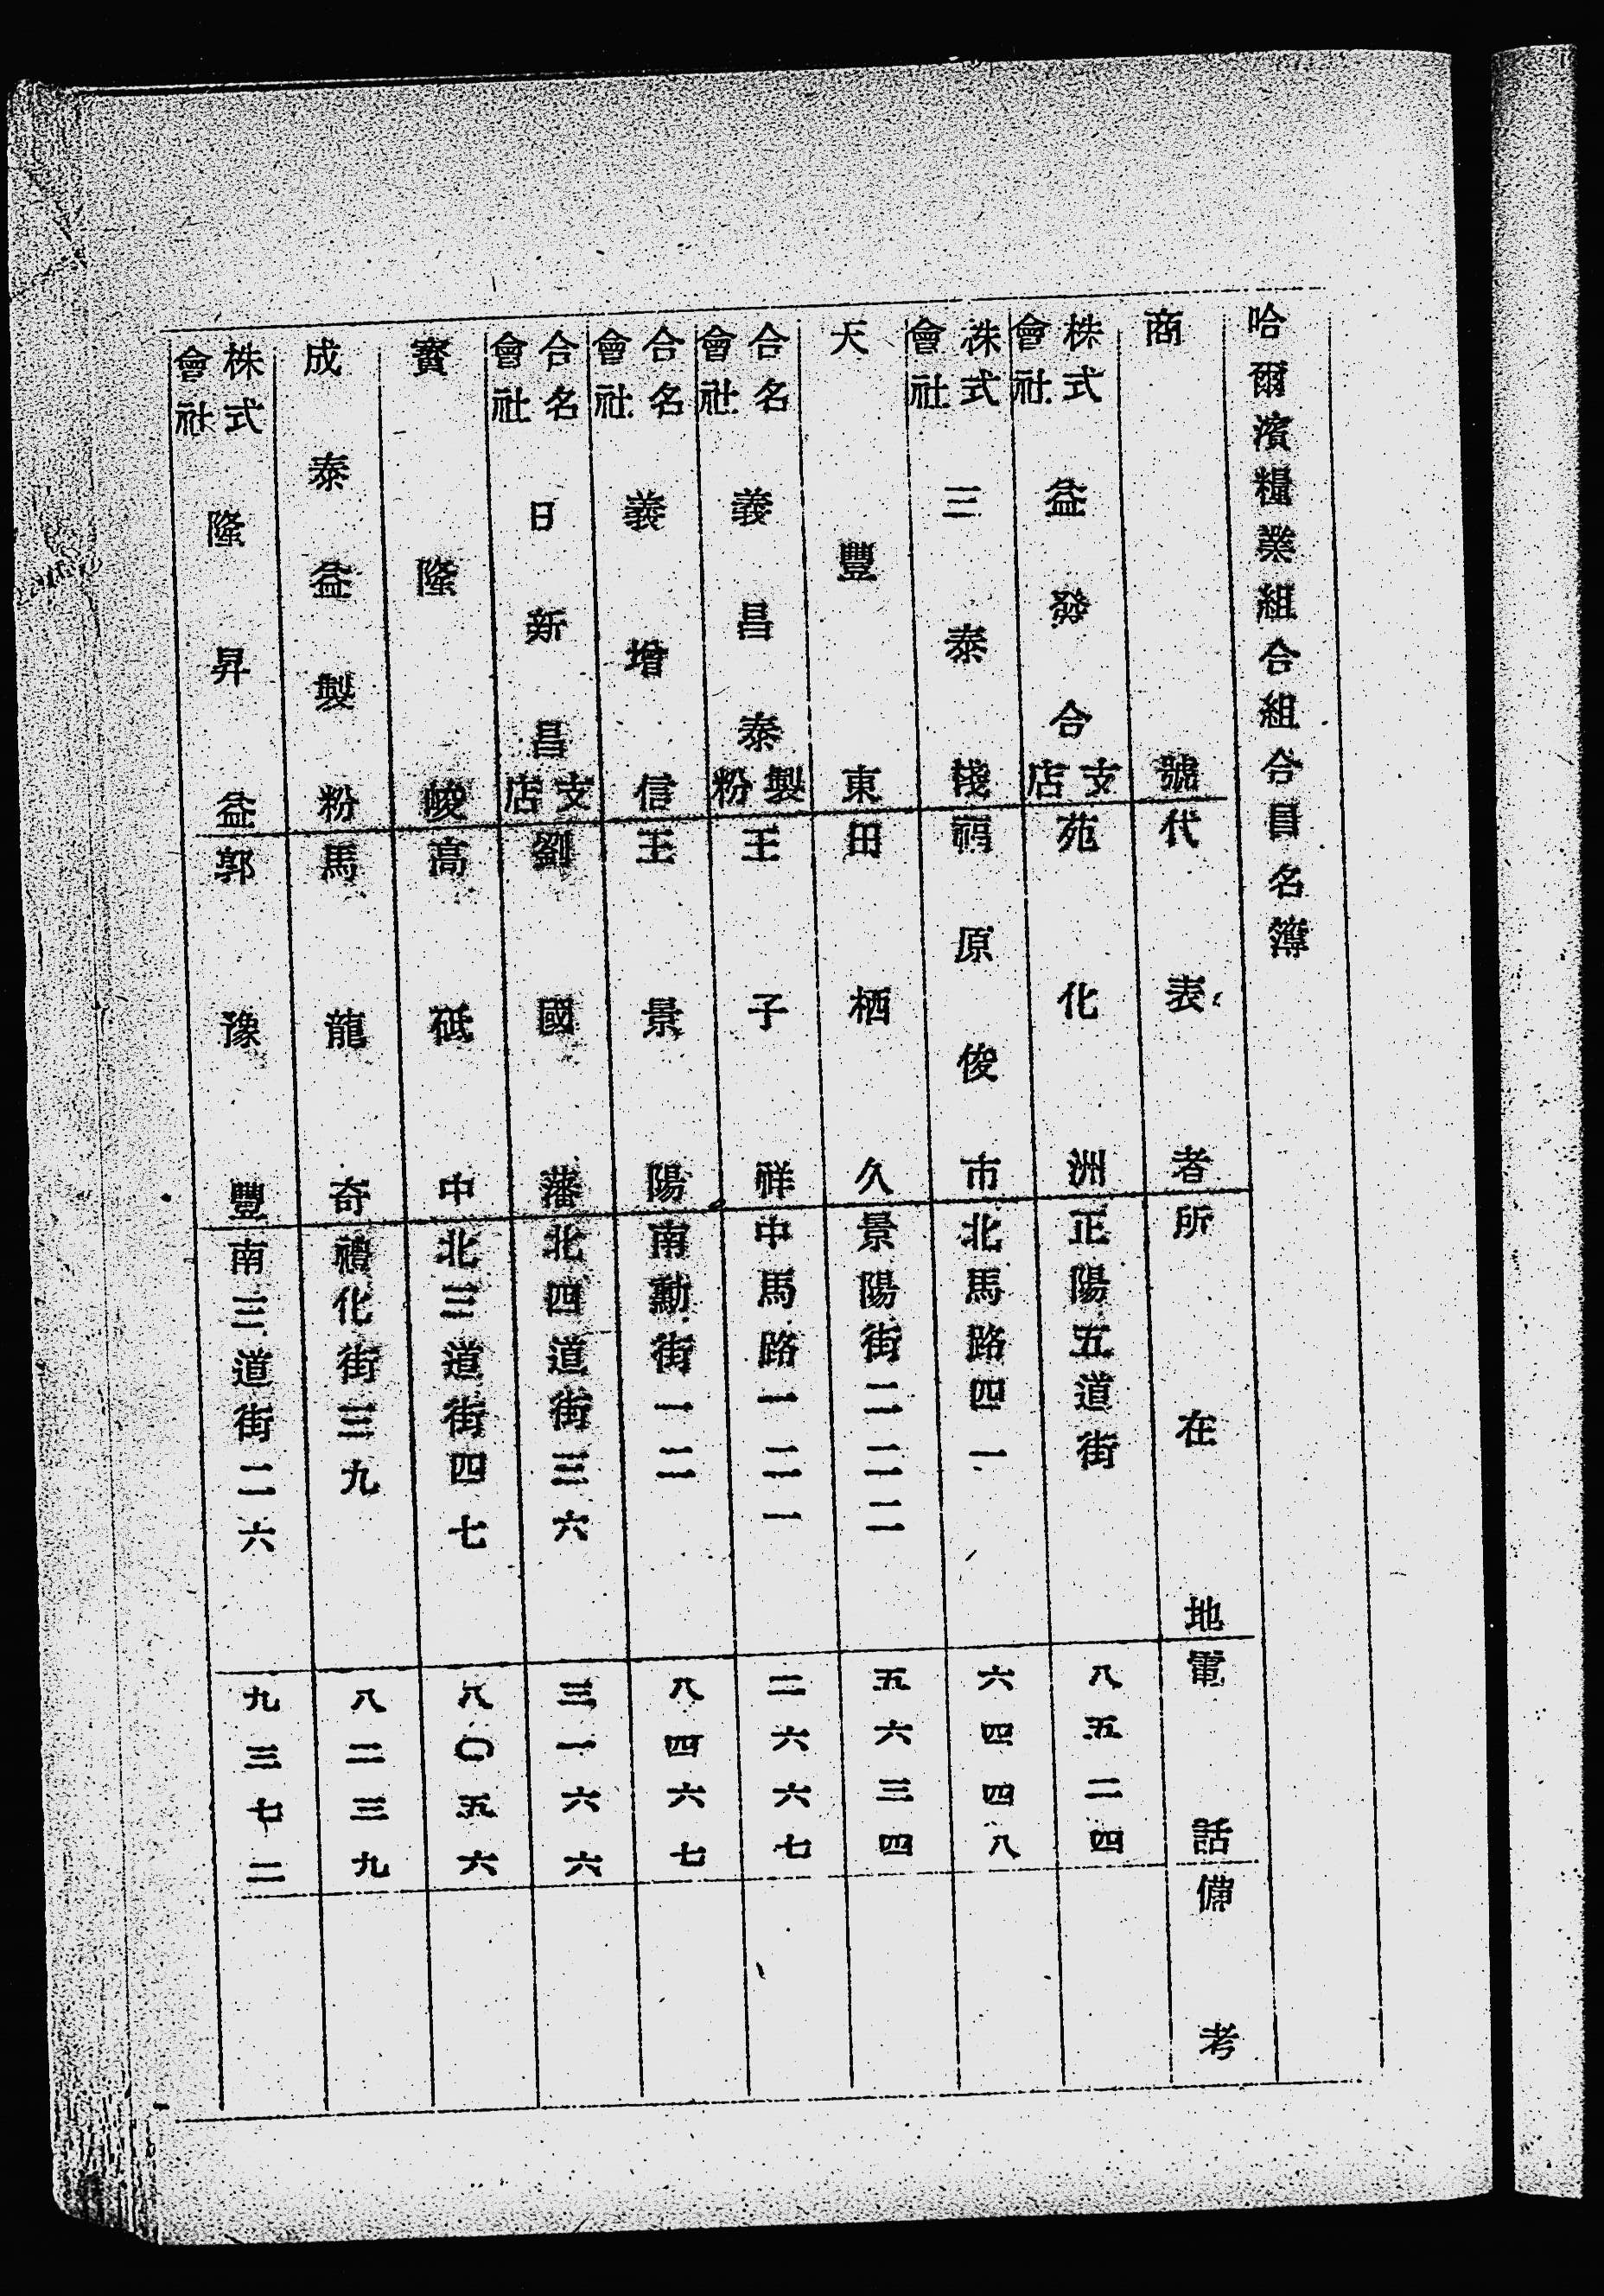 哈爾濱糧業組合組合員名簿
商號 代表者 所在地 電話 備考
株式會社 益發合支店 苑化洲 正陽五道街 八五二四
株式會社 三泰棧 福原俊市 北馬路四一 六四四八
天豐東 田栖久 景陽街二二二 五六三四
合名會社 義昌泰製粉 王子祥 中馬路一二一 二六六七
合名會社 義增信 王景陽 南勳街一二 八四六七
合名會社 日新昌支店 劉國藩 北四道街三六 三一六六
寶隆峻 高砥中 北三道街四七 八〇五六
成泰益製粉 馬龍奇 禮化街三九 八二三九
株式會社 隆昇益 郭豫豐 南三道街二六 九三七二